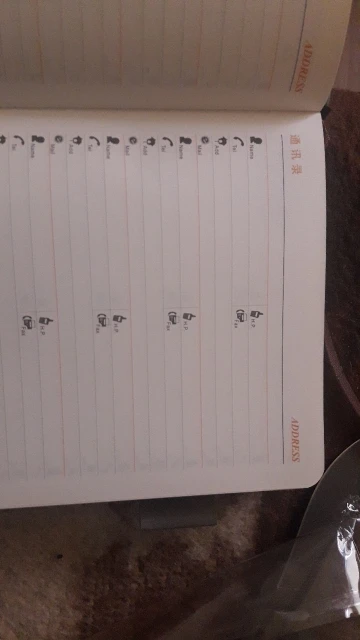 ADDRESS
通讯录 ADDRESS
Name H.P
Tel Fax
Add
Mail
Name H.P
Tel Fax
Add
Mail
Name H.P
Tel Fax
Add
Mail
Name H.P
Tel Fax